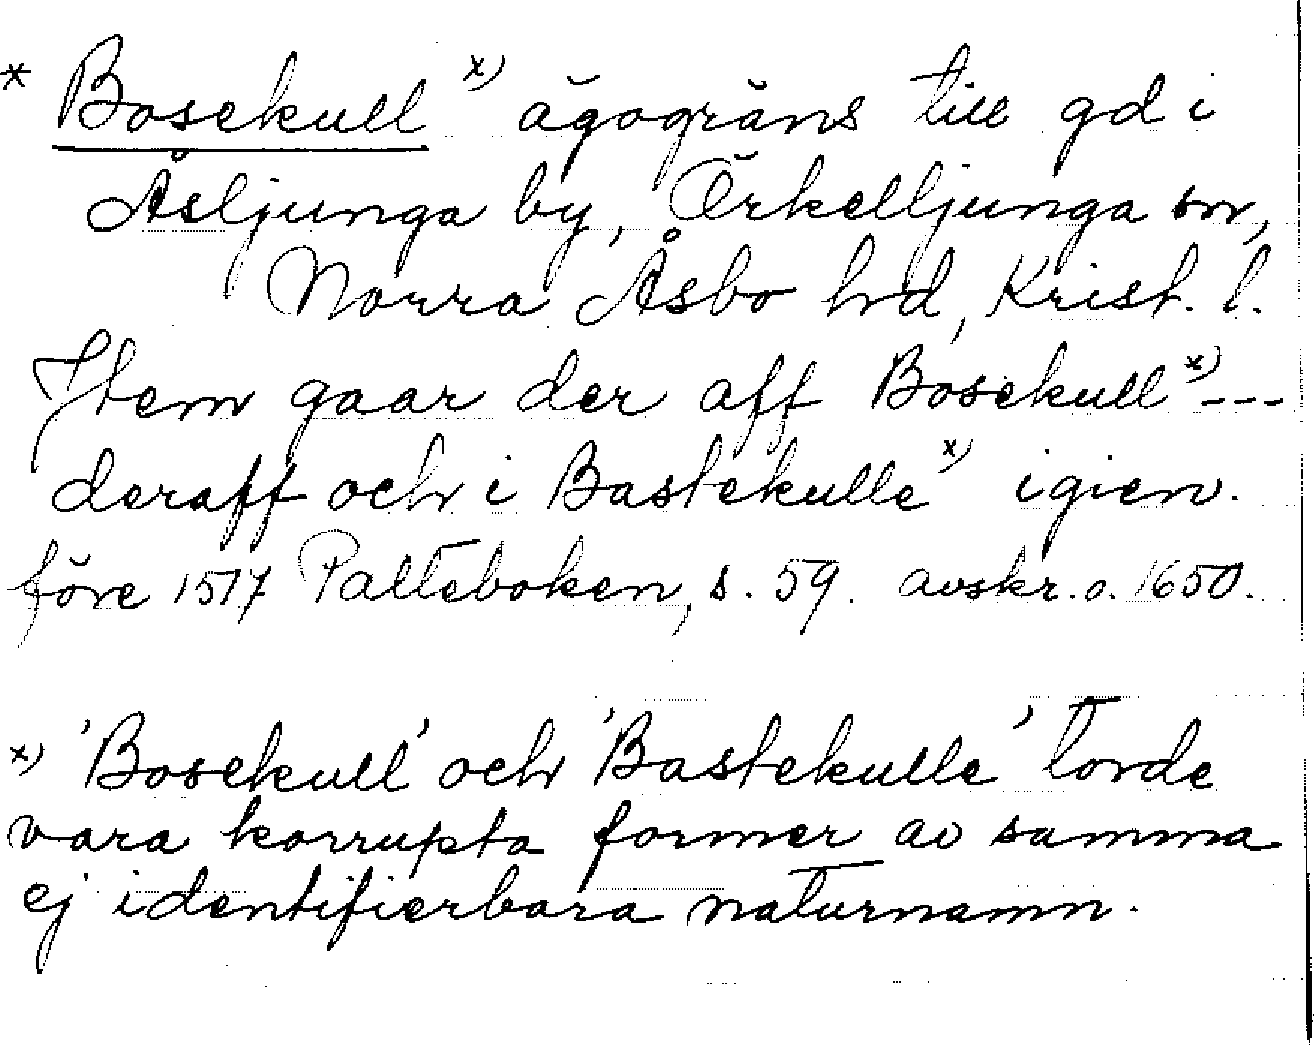 * Bosekull x) ägogräns till gd i
Åsljunga by, Örkelljunga sn,
Norra Åsbo hd, Krist. l.
Item gaar der aff Bosekull x) ---
deraff och i Bastekulle x) igien.
före 1517 Palteboken, s. 59. avskr. o. 1650.
x) 'Bosekull' och 'Bastekulle' torde
vara korrupta former av samma
ej identifierbara naturnamn.